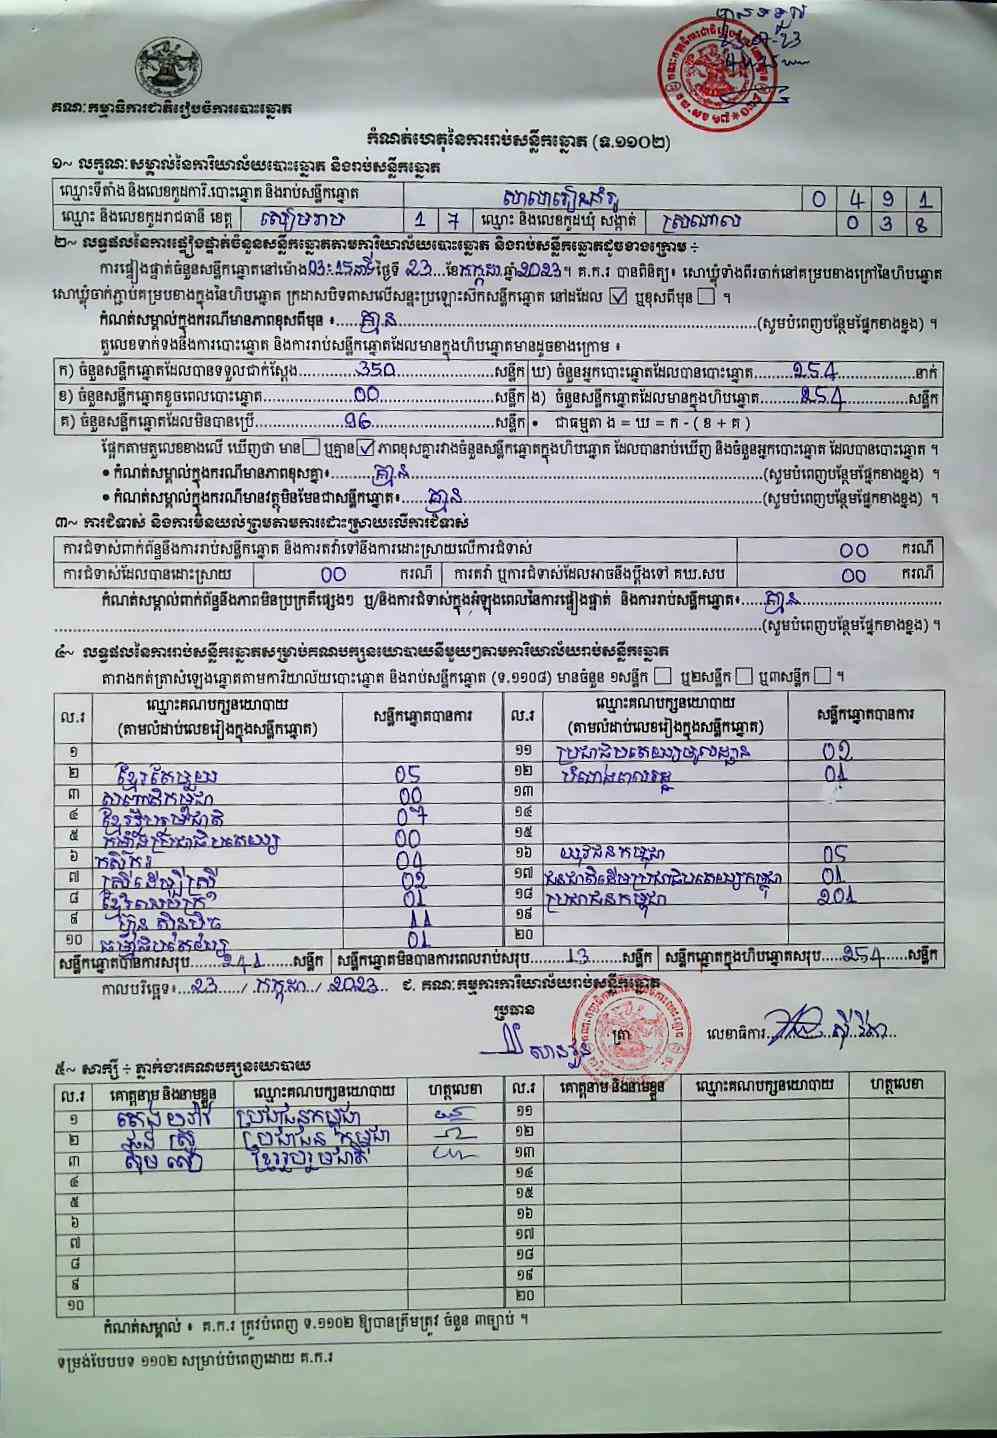 បានទទួល
23-07-23
គណៈកម្មាធិការជាតិរៀបចំការបោះឆ្នោត
កំណត់ហេតុនៃការរាប់សន្លឹកឆ្នោត (ទ.១១០២)
១~ លក្ខណៈសម្គាល់នៃការិយាល័យបោះឆ្នោត និងរាប់សន្លឹកឆ្នោត
ឈ្មោះទីតាំង និងលេខកូដការិ.បោះឆ្នោត និងរាប់សន្លឹកឆ្នោត 0 4 9 1
ឈ្មោះ និងលេខកូដរាជធានី ខេត្ត សៀមរាប 1 7 ឈ្មោះ និងលេខកូដឃុំ សង្កាត់ ស្រណាល 0 3 8
២~ លទ្ធផលនៃការផ្ទៀងផ្ទាត់ចំនួនសន្លឹកឆ្នោតតាមការិយាល័យបោះឆ្នោត និងរាប់សន្លឹកឆ្នោតដូចខាងក្រោម ÷
ការផ្ទៀងផ្ទាត់ចំនួនសន្លឹកឆ្នោតនៅម៉ោង 03:15នាទី ថ្ងៃទី 23 ខែ កក្កដា ឆ្នាំ 2023 ។ គ.ក.រ បានពិនិត្យ៖ សោឃ្លុំទាំងពីរចាក់នៅគម្របខាងក្រៅនៃហិបឆ្នោត
សោឃ្លុំចាក់ភ្ជាប់គម្របខាងក្នុងនៃហិបឆ្នោត ក្រដាសបិទពាសលើសន្ទះប្រឡោះសឹកសន្លឹកឆ្នោត នៅដដែល ☑ ឬខុសពីមុន ☐ ។
កំណត់សម្គាល់ក្នុងករណីមានភាពខុសពីមុន ៖ គ្មាន (សូមបំពេញបន្ថែមផ្នែកខាងខ្នង) ។
តួលេខទាក់ទងនឹងការបោះឆ្នោត និងការរាប់សន្លឹកឆ្នោតដែលមានក្នុងហិបឆ្នោតមានដូចខាងក្រោម ៖
ក) ចំនួនសន្លឹកឆ្នោតដែលបានទទួលជាក់ស្តែង 350 សន្លឹក ឃ) ចំនួនអ្នកបោះឆ្នោតដែលបានបោះឆ្នោត 254 នាក់
ខ) ចំនួនសន្លឹកឆ្នោតខូចពេលបោះឆ្នោត 00 សន្លឹក ង) ចំនួនសន្លឹកឆ្នោតដែលមានក្នុងហិបឆ្នោត 254 សន្លឹក
គ) ចំនួនសន្លឹកឆ្នោតដែលមិនបានប្រើ 96 សន្លឹក • ជាធម្មតា ង = ឃ = ក - ( ខ + គ )
ផ្អែកតាមតួលេខខាងលើ ឃើញថា មាន ☐ ឬគ្មាន ☑ ភាពខុសគ្នារវាងចំនួនសន្លឹកឆ្នោតក្នុងហិបឆ្នោត ដែលបានរាប់ឃើញ និងចំនួនអ្នកបោះឆ្នោត ដែលបានបោះឆ្នោត ។
• កំណត់សម្គាល់ក្នុងករណីមានភាពខុសគ្នា៖ គ្មាន (សូមបំពេញបន្ថែមផ្នែកខាងខ្នង) ។
• កំណត់សម្គាល់ក្នុងករណីមានវត្ថុមិនមែនជាសន្លឹកឆ្នោត៖ គ្មាន (សូមបំពេញបន្ថែមផ្នែកខាងខ្នង) ។
៣~ ការជំទាស់ និងការមិនយល់ព្រមតាមការដោះស្រាយលើការជំទាស់
ការជំទាស់ពាក់ព័ន្ធនឹងការរាប់សន្លឹកឆ្នោត និងការតវ៉ាទៅនឹងការដោះស្រាយលើការជំទាស់ 00 ករណី
ការជំទាស់ដែលបានដោះស្រាយ 00 ករណី ការតវ៉ា ឬការជំទាស់ដែលអាចនឹងប្តឹងទៅ គឃ.សប 00 ករណី
កំណត់សម្គាល់ពាក់ព័ន្ធនឹងភាពមិនប្រក្រតីផ្សេងៗ ឬ/និងការជំទាស់ក្នុងអំឡុងពេលនៃការផ្ទៀងផ្ទាត់ និងការរាប់សន្លឹកឆ្នោត៖ គ្មាន
(សូមបំពេញបន្ថែមផ្នែកខាងខ្នង) ។
៤~ លទ្ធផលនៃការរាប់សន្លឹកឆ្នោតសម្រាប់គណបក្សនយោបាយនីមួយៗតាមការិយាល័យរាប់សន្លឹកឆ្នោត
តារាងកត់ត្រាសំឡេងឆ្នោតតាមការិយាល័យបោះឆ្នោត និងរាប់សន្លឹកឆ្នោត (ទ.១១០៨) មានចំនួន ១សន្លឹក ☐ ឬ២សន្លឹក ☐ ឬ៣សន្លឹក ☐ ។
ល.រ ឈ្មោះគណបក្សនយោបាយ (តាមលំដាប់លេខរៀងក្នុងសន្លឹកឆ្នោត) សន្លឹកឆ្នោតបានការ ល.រ ឈ្មោះគណបក្សនយោបាយ (តាមលំដាប់លេខរៀងក្នុងសន្លឹកឆ្នោត) សន្លឹកឆ្នោតបានការ
១ ១១ ប្រជាធិបតេយ្យមូលដ្ឋាន 02
២ ខ្មែរតែមួយ 05 ១២ 01
៣ សញ្ជាតិកម្ពុជា 00 ១៣
៤ ខ្មែររួបរួមជាតិ 07 ១៤
៥ កម្លាំងប្រជាធិបតេយ្យ 00 ១៥
៦ កសិករ 04 ១៦ យុវជនកម្ពុជា 05
៧ ស្ត្រីដើម្បីស្ត្រី 02 ១៧ ជនជាតិដើមប្រជាធិបតេយ្យកម្ពុជា 01
៨ ខ្មែរអភិរក្ស 01 ១៨ ប្រជាជនកម្ពុជា 201
៩ ហ៊្វុនស៊ិនប៉ិច 11 ១៩
១០ ធម្មាធិបតេយ្យ 01 ២០
សន្លឹកឆ្នោតបានការសរុប 241 សន្លឹក សន្លឹកឆ្នោតមិនបានការពេលរាប់សរុប 13 សន្លឹក សន្លឹកឆ្នោតក្នុងហិបឆ្នោតសរុប 254 សន្លឹក
កាលបរិច្ឆេទ៖ 23 / កក្កដា / 2023 ៩. គណៈកម្មការការិយាល័យរាប់សន្លឹកឆ្នោត
ប្រធាន
ត្រា លេខាធិការ
៥~ សាក្សី ÷ ភ្នាក់ងារគណបក្សនយោបាយ
ល.រ គោត្តនាម និងនាមខ្លួន ឈ្មោះគណបក្សនយោបាយ ហត្ថលេខា ល.រ គោត្តនាម និងនាមខ្លួន ឈ្មោះគណបក្សនយោបាយ ហត្ថលេខា
១ ប្រជាជនកម្ពុជា ១១
២ ប្រជាជន កម្ពុជា ១២
៣ ខ្មែររួបរួមជាតិ ១៣
៤ ១៤
៥ ១៥
៦ ១៦
៧ ១៧
៨ ១៨
៩ ១៩
១០ ២០
កំណត់សម្គាល់ ៖ គ.ក.រ ត្រូវបំពេញ ទ.១១០២ ឱ្យបានត្រឹមត្រូវ ចំនួន ៣ច្បាប់ ។
ទម្រង់បែបបទ ១១០២ សម្រាប់បំពេញដោយ គ.ក.រ